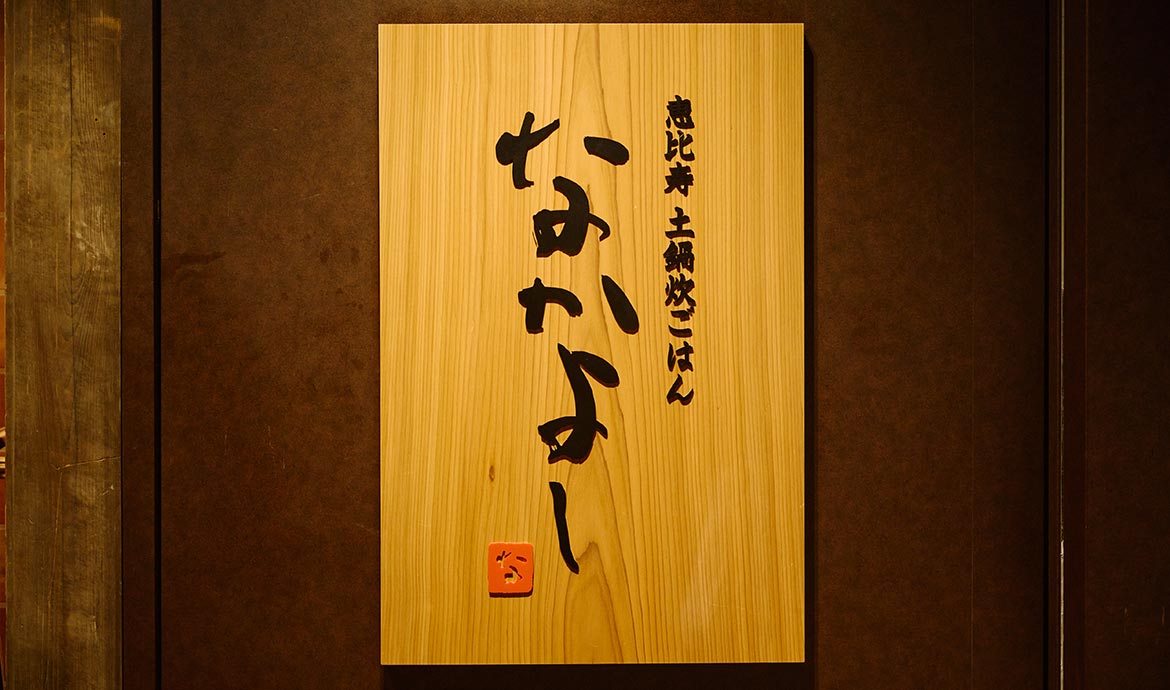 恵比寿 土鍋炊ごはん
なかよし
な